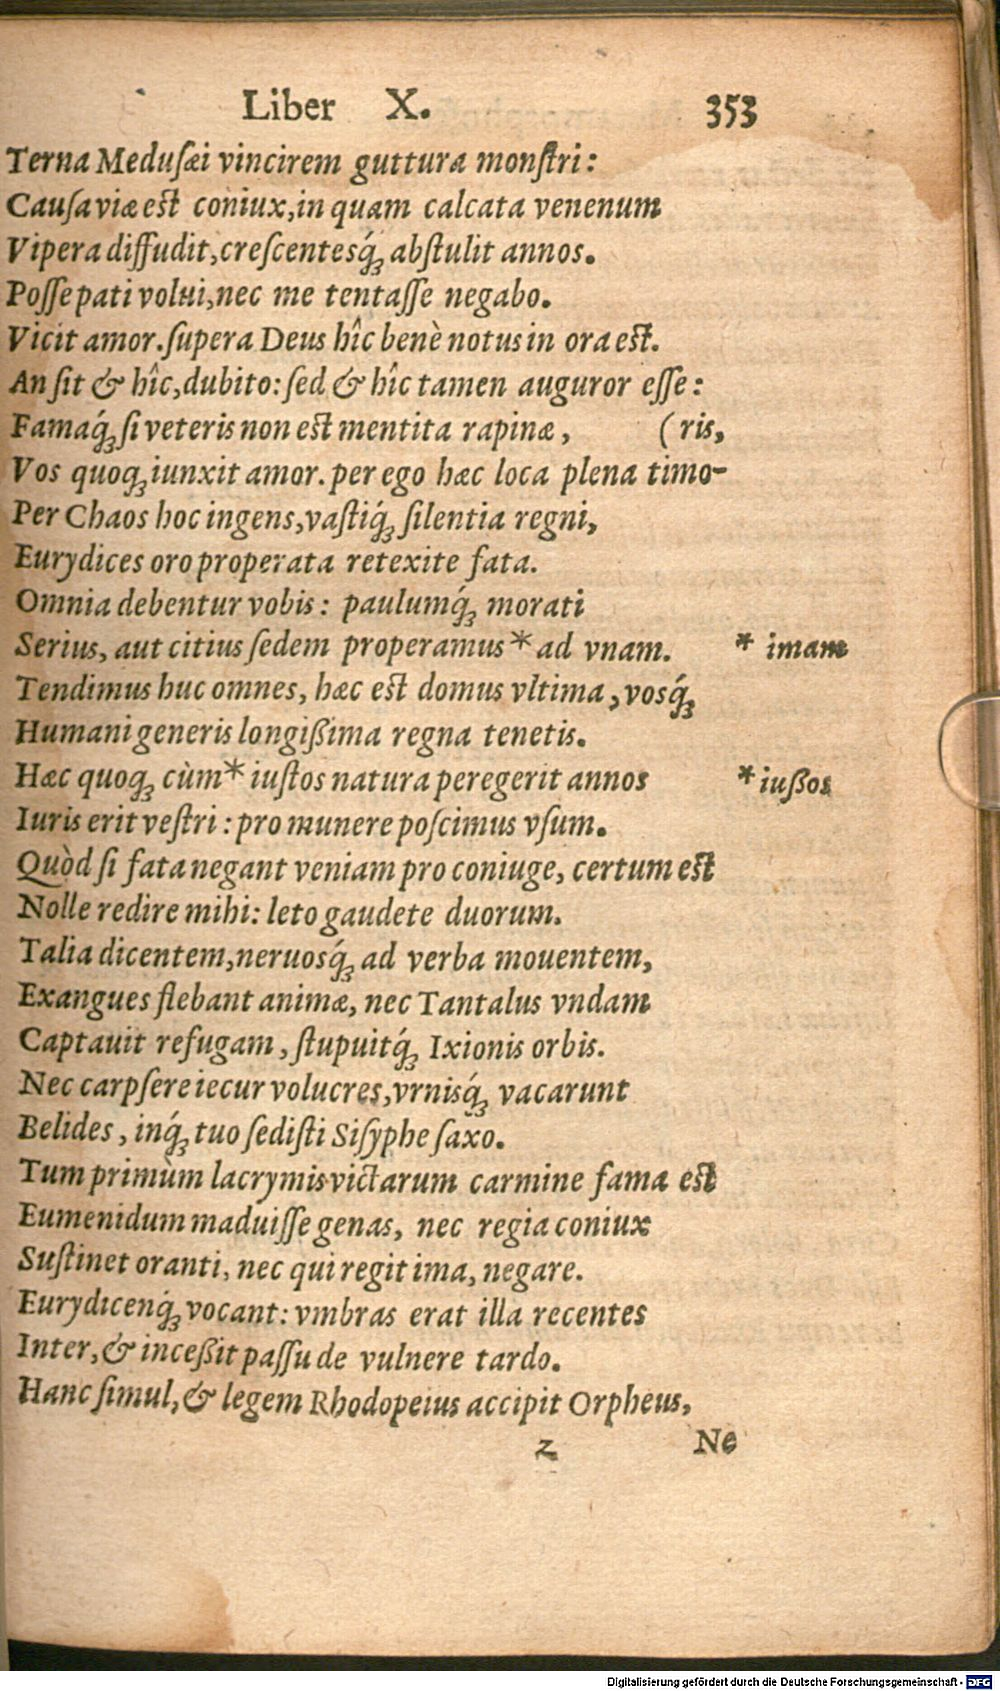 Liber X. 353
Terna Medusæi vincirem guttura monstri:
Causa viæ est coniux, in quam calcata venenum
Vipera diffudit, crescentesq́ꝫ abstulit annos.
Posse pati volui, nec me tentasse negabo.
Vicit amor. supera Deus hîc benè notus in ora est.
An sit & hîc, dubito: sed & hîc tamen auguror esse:
Famaq́ꝫ si veteris non est mentita rapinæ, (ris,
Vos quoqꝫ iunxit amor. per ego hæc loca plena timo-
Per Chaos hoc ingens, vastiq́ꝫ silentia regni,
Eurydices oro properata retexite fata.
Omnia debentur vobis: paulumq́ꝫ morati
Serius, aut citius sedem properamus * ad vnam. * imam
Tendimus huc omnes, hæc est domus vltima, vosq́ꝫ
Humani generis longißima regna tenetis.
Hæc quoqꝫ cùm * iustos natura peregerit annos * iußos
Iuris erit vestri: pro munere poscimus vsum.
Quòd si fata negant veniam pro coniuge, certum est
Nolle redire mihi: leto gaudete duorum.
Talia dicentem, neruosq́ꝫ ad verba mouentem,
Exangues flebant animæ, nec Tantalus vndam
Captauit refugam, stupuitq́ꝫ Ixionis orbis.
Nec carpsere iecur volucres, vrnisq́ꝫ vacarunt
Belides, inq́ꝫ tuo sedisti Sisyphe saxo.
Tum primùm lacrymis victarum carmine fama est
Eumenidum maduisse genas, nec regia coniux
Sustinet oranti, nec qui regit ima, negare.
Eurydicenq́ꝫ vocant: vmbras erat illa recentes
Inter, & inceßit passu de vulnere tardo.
Hanc simul, & legem Rhodopeius accipit Orpheus,
z Ne
Digitalisierung gefördert durch die Deutsche Forschungsgemeinschaft - DFG